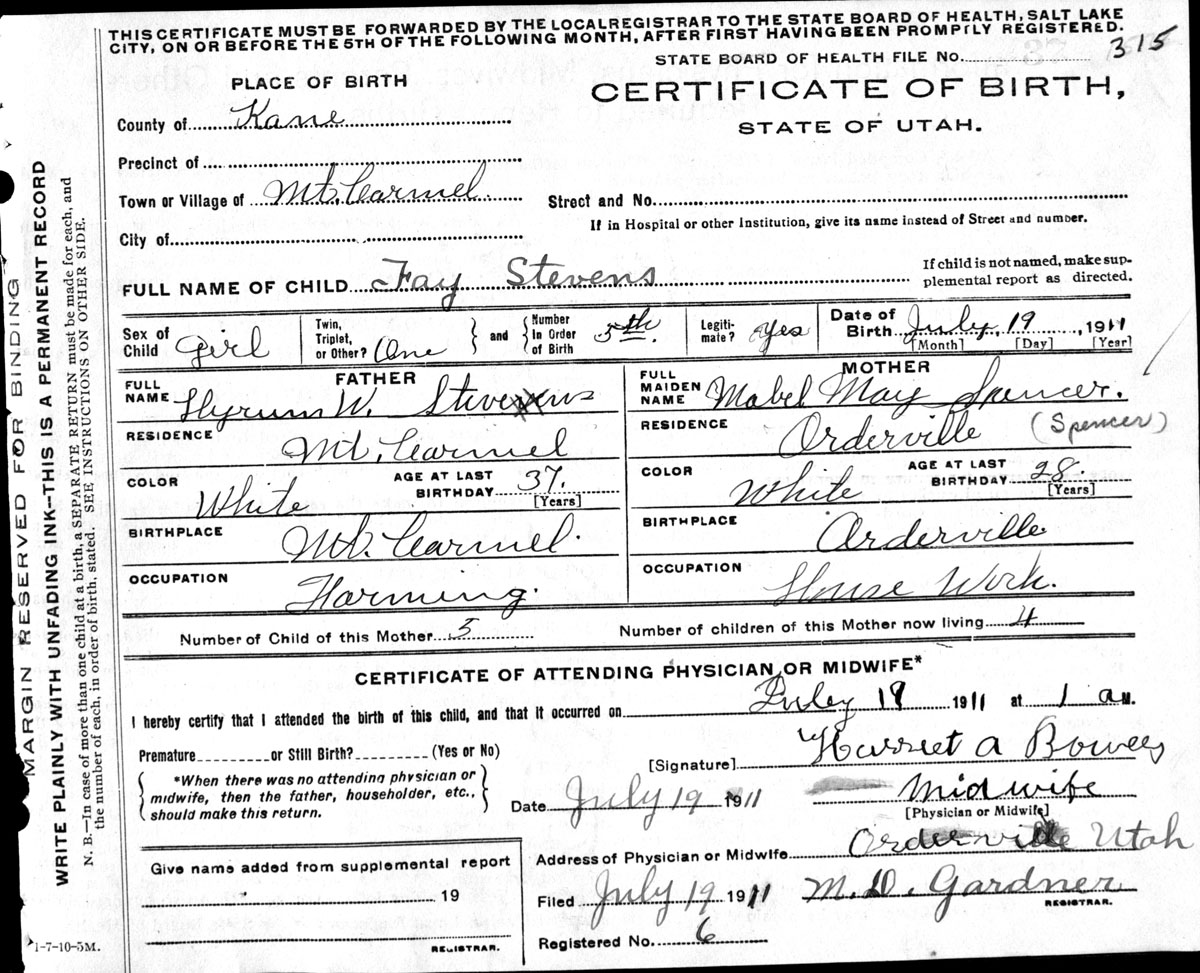 THIS CERTIFICATE MUST BE FORWARDED BY THE LOCAL REGISTRAR TO THE STATE BOARD OF HEALTH, SALT LAKE
CITY, ON OR BEFORE THE 5TH OF THE FOLLOWING MONTH, AFTER FIRST HAVING BEEN PROMPTLY REGISTERED.
STATE BOARD OF HEALTH FILE No. 315
PLACE OF BIRTH
CERTIFICATE OF BIRTH,
STATE OF UTAH.
County of Kane
Precinct of
Town or Village of Mt. Carmel
Street and No.
If in Hospital or other Institution, give its name instead of Street and number.
City of
FULL NAME OF CHILD Fay Stevens
If child is not named, make sup-
plemental report as directed.
Sex of Child Girl
Twin, Triplet, or Other? One
and Number In Order of Birth 5th
Legiti- mate? Yes
Date of Birth July 19, 1911
[Month] [Day] [Year]
FATHER
FULL NAME Hyrum W. Stevens
RESIDENCE Mt. Carmel
COLOR White
AGE AT LAST BIRTHDAY 37. [Years]
BIRTHPLACE Mt. Carmel.
OCCUPATION Farming.
MOTHER
FULL MAIDEN NAME Mabel May Spencer.
RESIDENCE Orderville (Spencer)
COLOR White
AGE AT LAST BIRTHDAY 28. [Years]
BIRTHPLACE Orderville
OCCUPATION House Work.
Number of Child of this Mother 5
Number of children of this Mother now living 4
CERTIFICATE OF ATTENDING PHYSICIAN OR MIDWIFE*
I hereby certify that I attended the birth of this child, and that it occurred on July 19 1911 at 1 a M.
Premature or Still Birth? (Yes or No)
[Signature] Harriet A
*When there was no attending physician or
midwife, then the father, householder, etc.,
should make this return.
Date July 19 1911
Midwife
[Physician or Midwife]
Address of Physician or Midwife Orderville Utah
Give name added from supplemental report
19
REGISTRAR.
Filed July 19 1911 M. D. Gardner
REGISTRAR.
Registered No. 6
1-7-10-5M.
MARGIN RESERVED FOR BINDING
WRITE PLAINLY WITH UNFADING INK—THIS IS A PERMANENT RECORD
N. B.—In case of more than one child at a birth, a SEPARATE RETURN must be made for each, and
the number of each, in order of birth, stated. SEE INSTRUCTIONS ON OTHER SIDE.